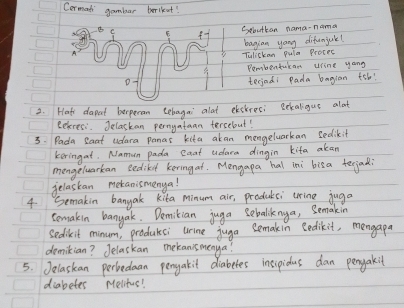 Cermati gambar berikut!
B
C
E
F
A
D
Sebutkan nama-nama
bagian yang ditunjuk!
Tuliskan pula Proses
Pembentukan urine yang
terjadi Pada bagian tsb!
2. Hati dapat berperan sebagai alat ekskresi sekaligus alat
sekresi. Jelaskan pernyataan tersebut!
3. Pada saat udara panas kita akan mengeluarkan sedikit
keringat. Namun pada saat udara dingin kita akan
mengeluarkan sedikit keringat. Mengapa hal ini bisa terjadi.
jelaskan mekanismenya!
4. Semakin banyak kita minum air, produksi urine juga
semakin banyak. Demikian juga sebaliknya, semakin
sedikit minum, produksi urine juga semakin sedikit, mengapa
demikian? Jelaskan mekanismenya!
5. Jelaskan perbedaan penyakit diabetes insipidus dan penyakit
diabetes Melitus!